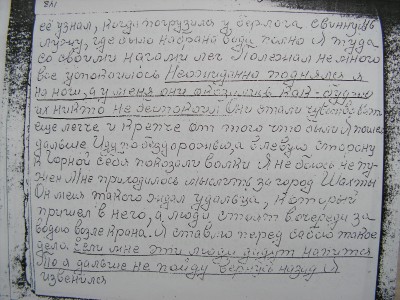 её узнал, когда погрузился у берлога свинную
лужу, где было набрано воды полна Я туда
со своими ногами лег Полежал немного
все успокоилось Неожиданно поднялся я
на ноги, а у меня они
их никто не беспокоил Они стали чувствовать
еще легче и крепче от того что были Я пошел
дальше Иду по бездорожью, а влевую сторону
в горной себя показали волки Я не боюсь
Мне приходилось мыслить за город Шахты
Он меня такого ждал удальца, который
пришел в него, а люди стоят в очереди за
водою возле крана. Я ставлю перед собою такое
дело. Если мне эти люди дадут напится
То я дальше не пойду вернусь назад Я
извенился